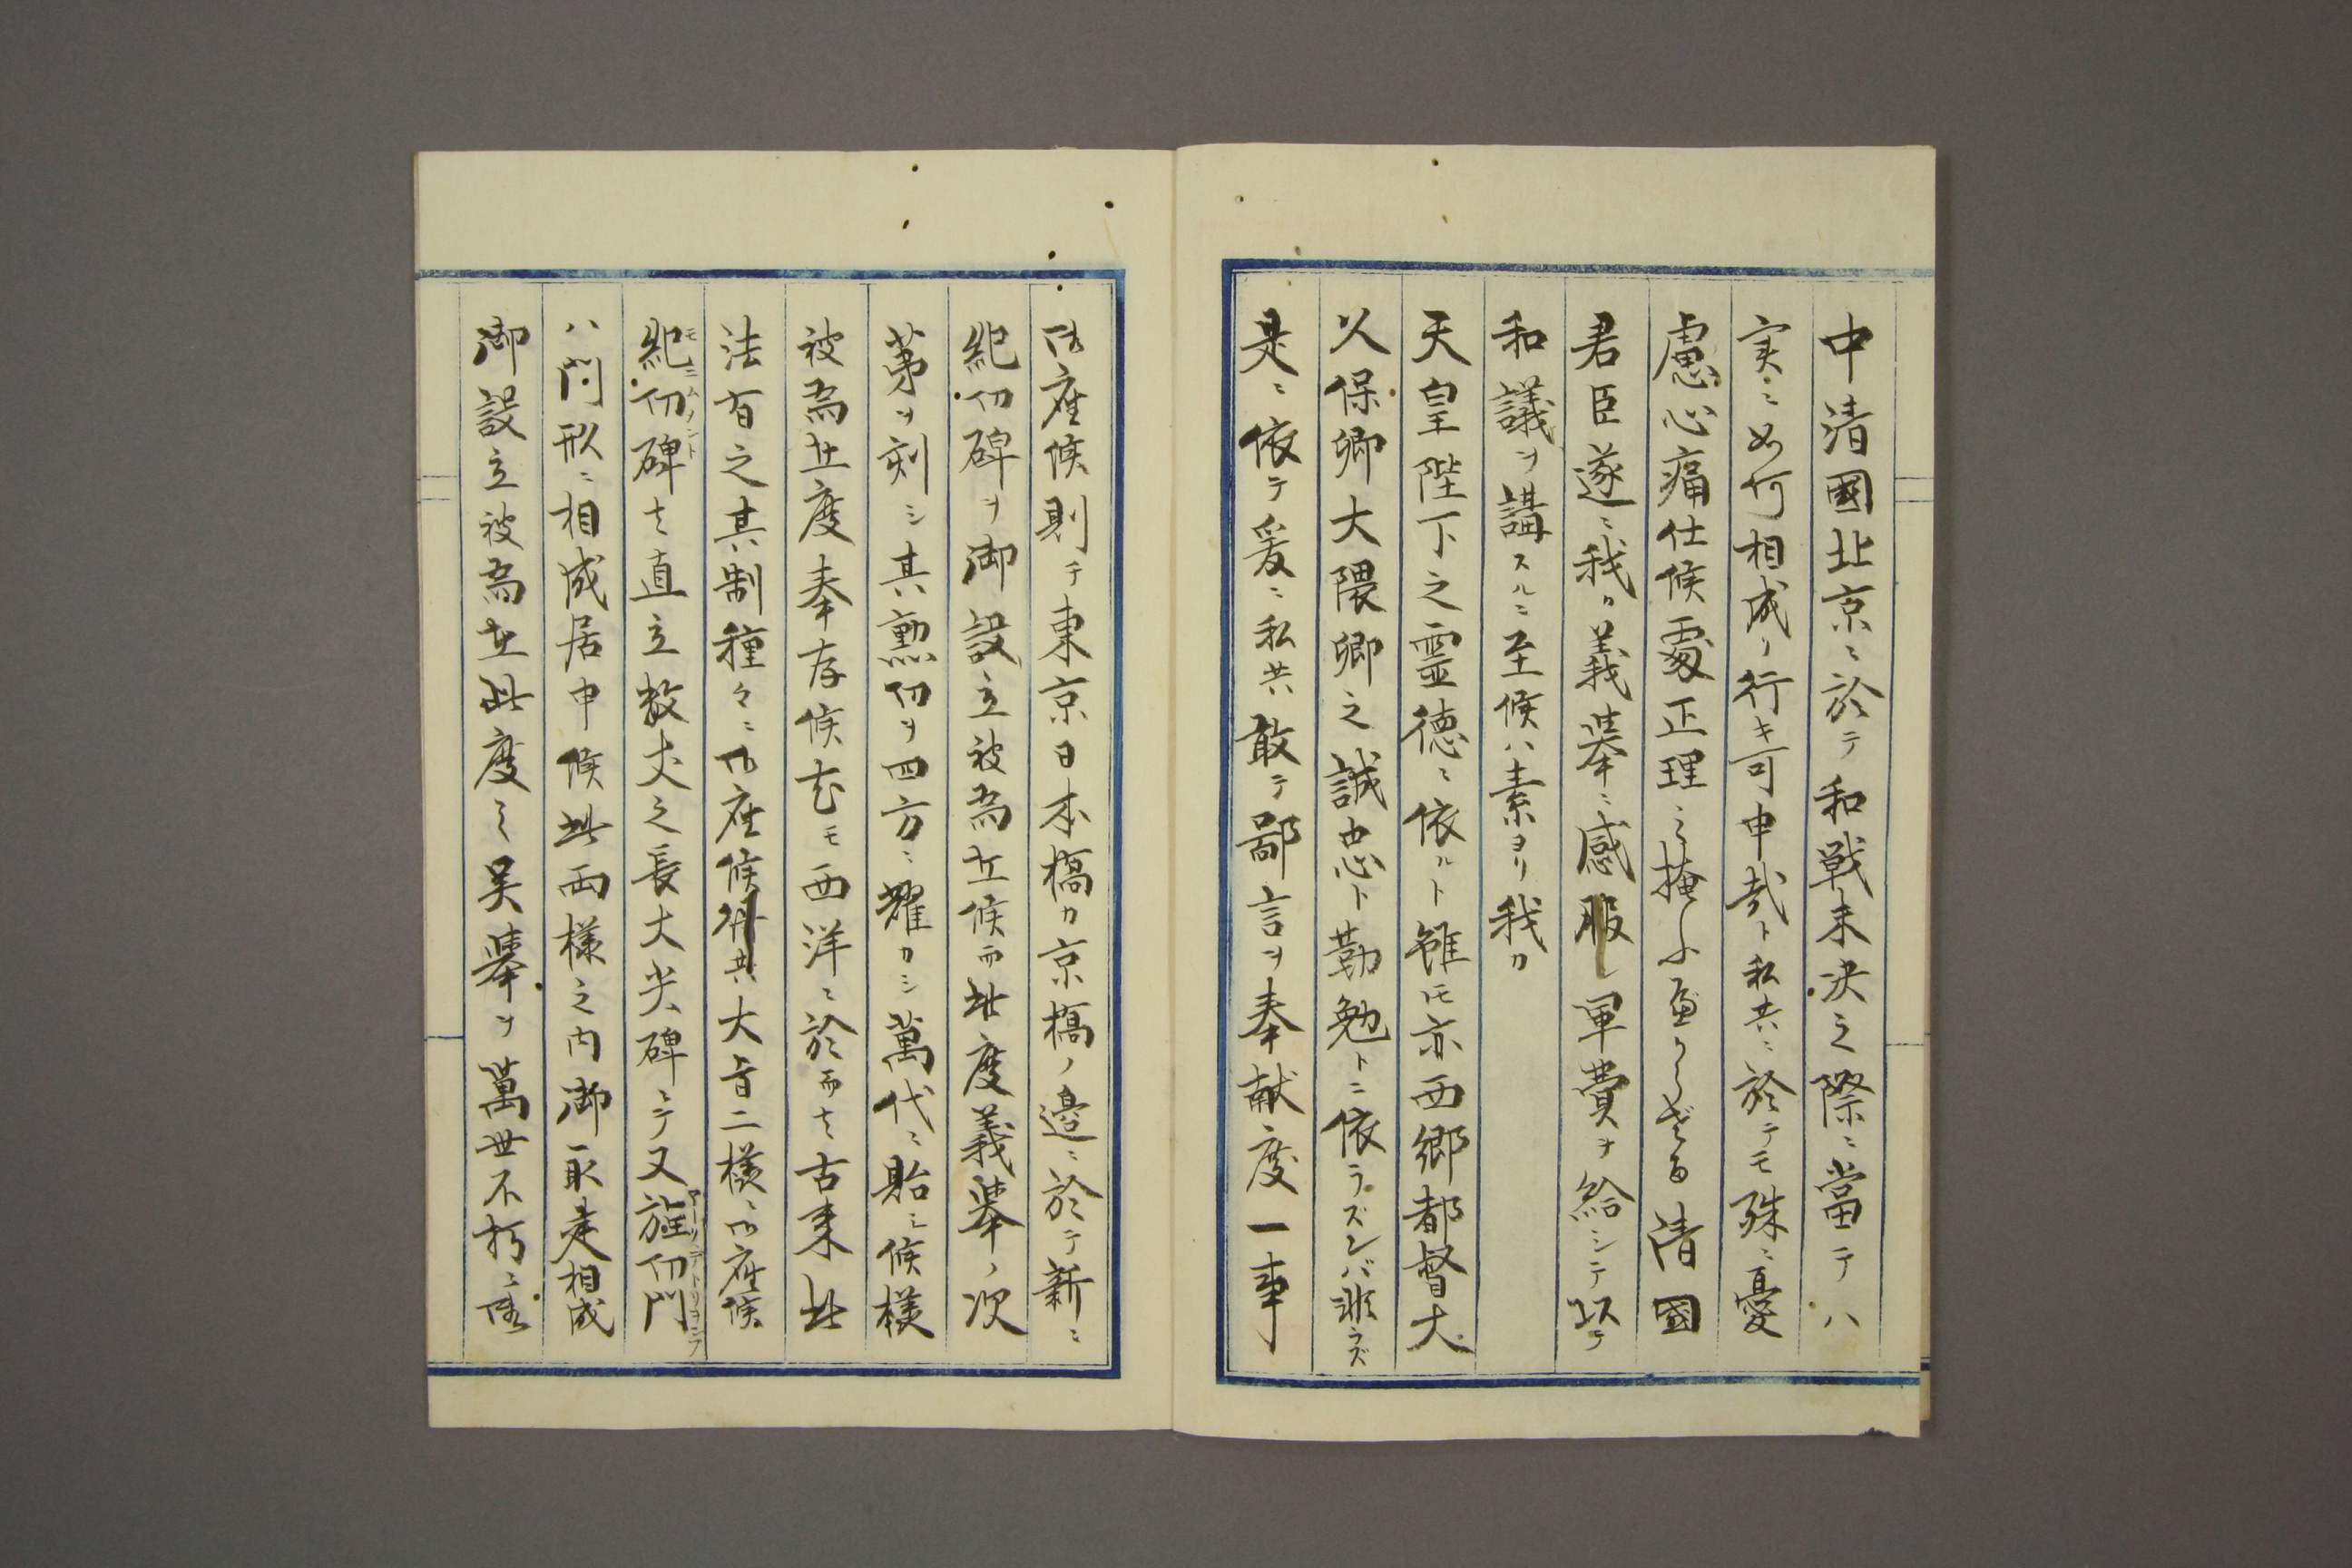 中清國北京ニ於テ和戦未決之際ニ當テハ
実ニ如何相成リ行キ可申哉ト私共ニ於テモ殊ニ憂
慮心痛仕候處正理ニ掩ふ可からざる清國
君臣遂ニ我カ義挙ニ感服シ軍費ヲ給シテ以テ
和議ヲ講スルニ至候ハ素ヨリ我カ
天皇陛下之霊徳ニ依ルト雖ドモ亦西郷都督大
久保卿大隈卿之誠忠ト勤勉トニ依ラズンバ非ラズ
是ニ依テ爰ニ私共敢テ鄙言ヲ奉献度一事
御座候則チ東京日本橋カ京橋ノ邉ニ於テ新ニ
紀功碑ヲ御設立被為在候而此度義挙ノ次
第ヲ刻シ其勲功ヲ四方ニ耀カシ萬代ニ貽シ候様
被為在度奉存候尤モ西洋ニ於而も古来此
法有之其制種々ニ御座候得共大旨二様ニ御座候
紀功碑モニユメントも直立数丈之長大尖碑ニテ又旌功門アーリデトリヨンフ
ハ門形ニ相成居申候此両様之内御取建相成
御設立被為在此度之美挙ヲ萬世不朽ニ傳